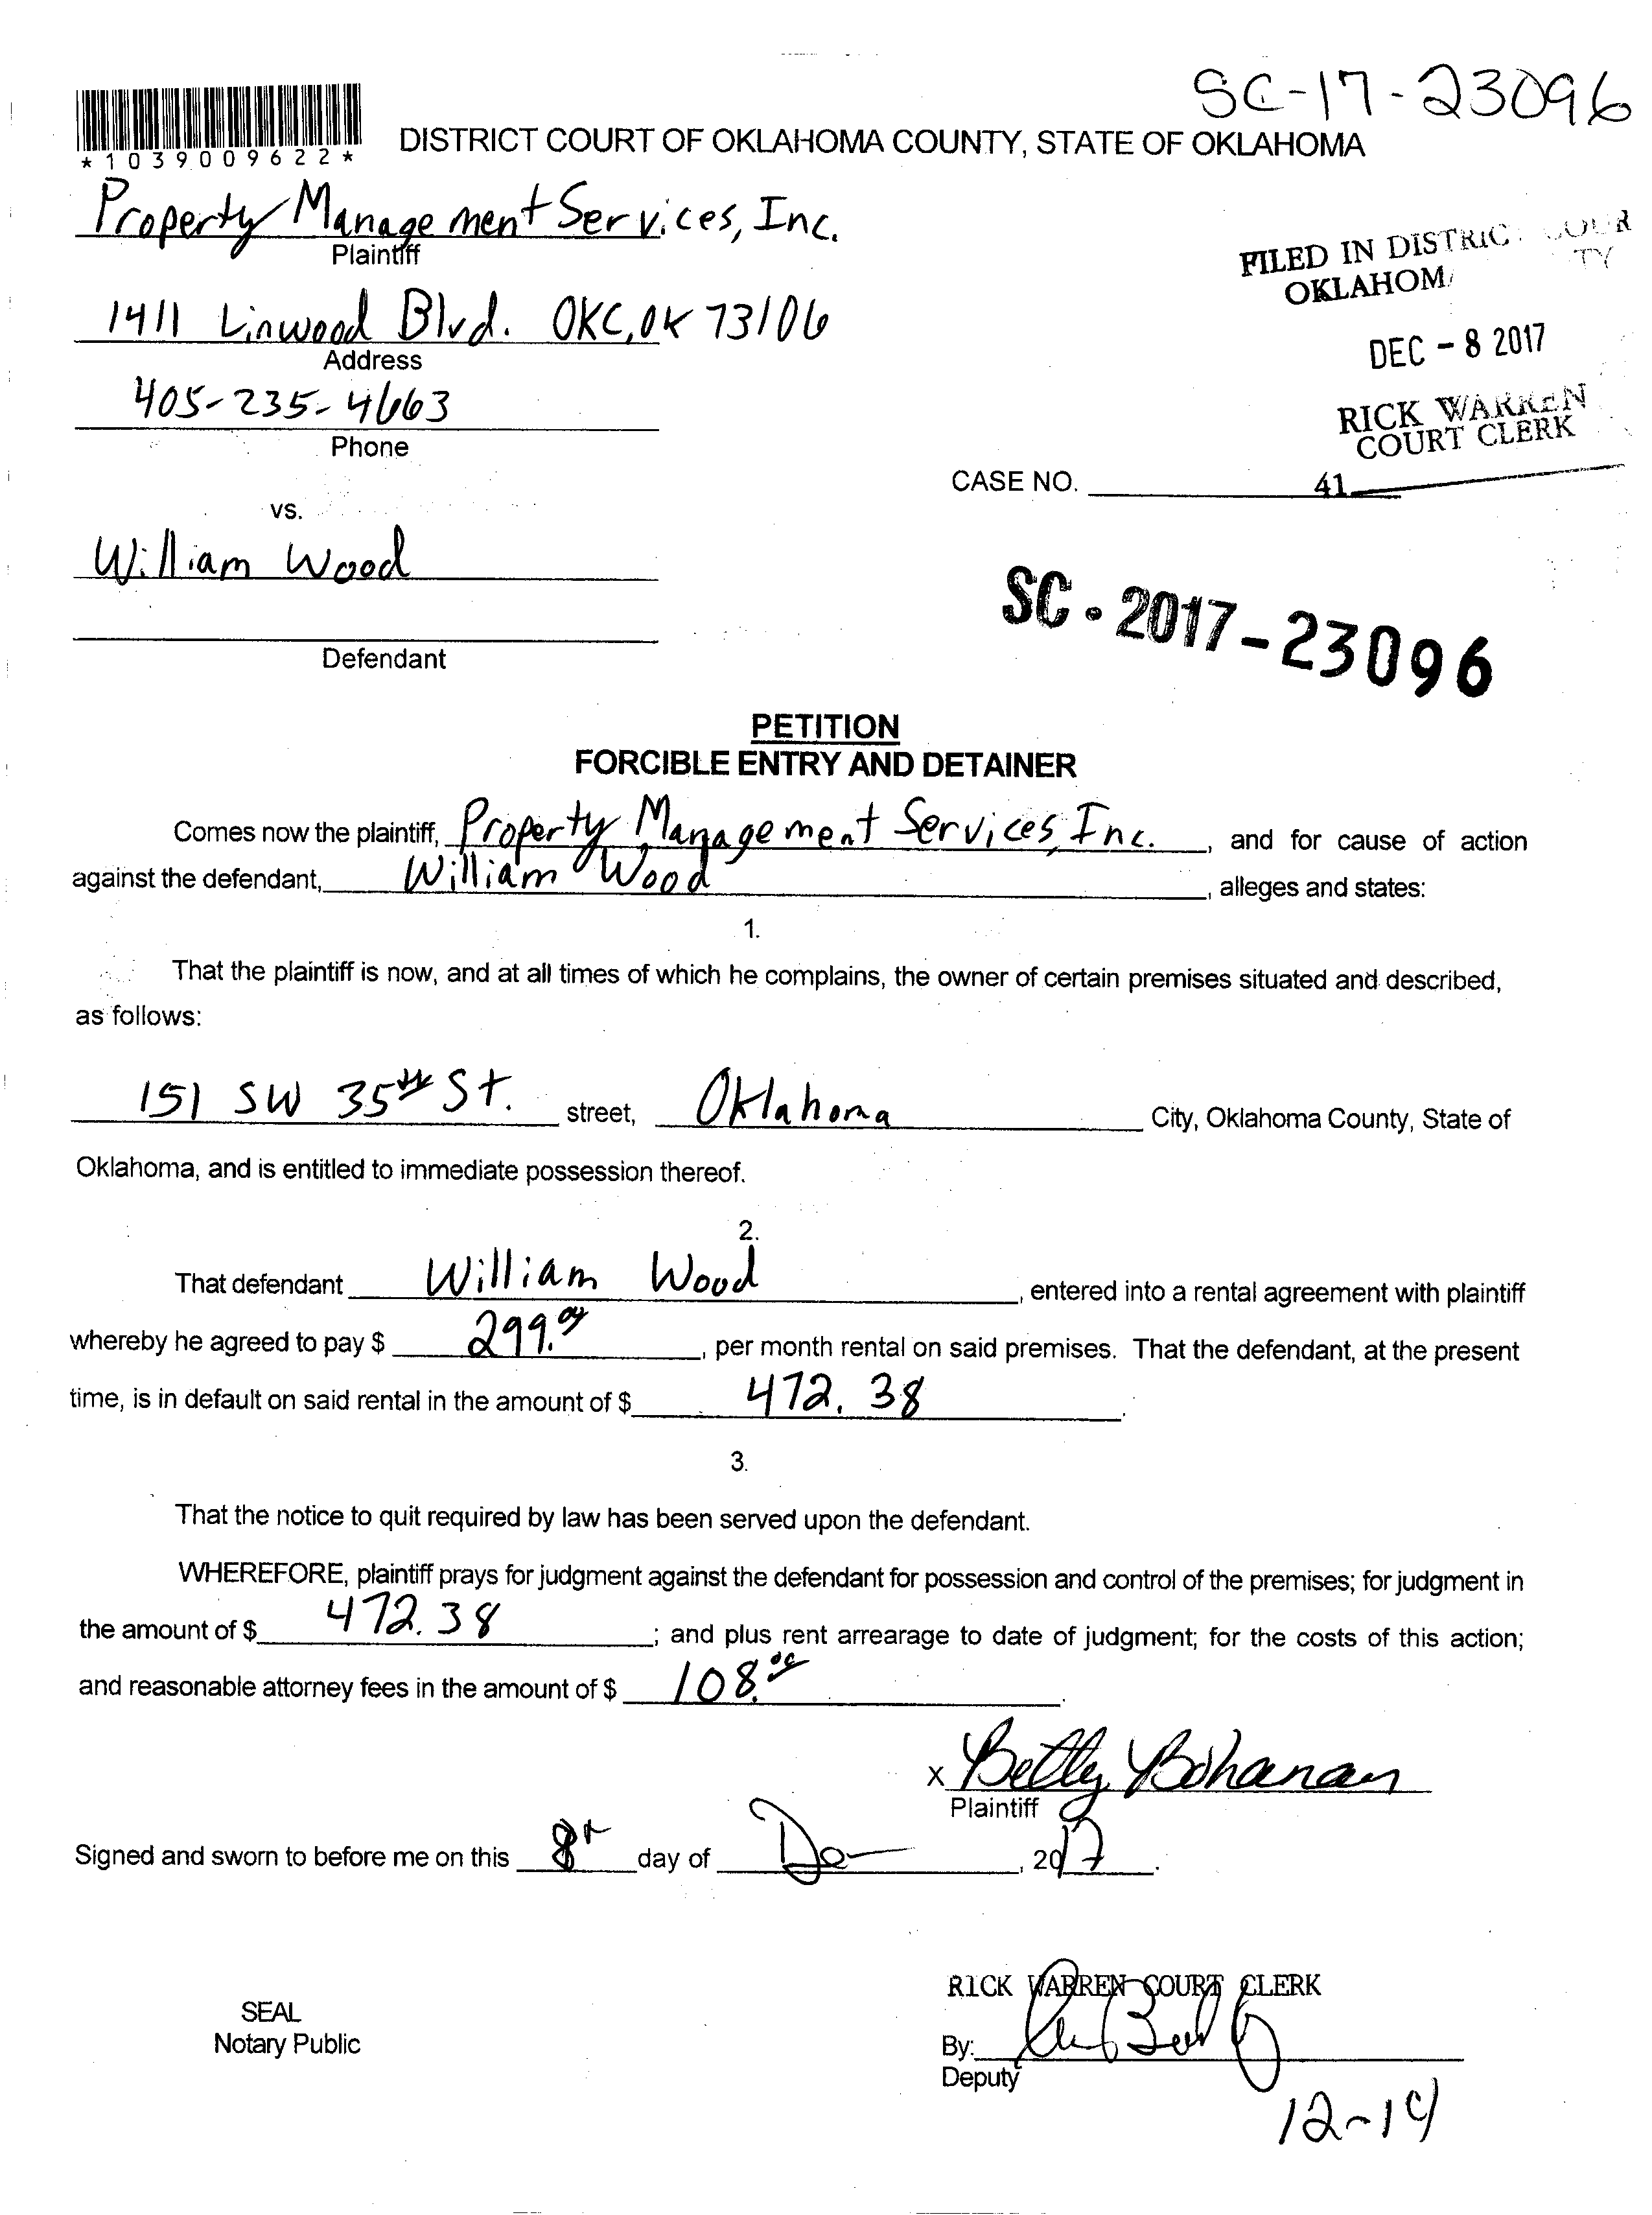 SC-17-23096
*1039009622*
DISTRICT COURT OF OKLAHOMA COUNTY, STATE OF OKLAHOMA
Property Management Services, Inc.
Plaintiff
FILED IN DISTRIC COUR
OKLAHOMA TY
1411 Linwood Blvd. OKC, OK 73106
Address
DEC - 8 2017
405-235-4663
Phone
RICK WARREN
COURT CLERK
CASE NO. 41
vs.
William Wood
SC - 2017 - 23096
Defendant
PETITION
FORCIBLE ENTRY AND DETAINER
Comes now the plaintiff, Property Management Services, Inc., and for cause of action
against the defendant, William Wood, alleges and states:
1.
That the plaintiff is now, and at all times of which he complains, the owner of certain premises situated and described,
as follows:
151 SW 35th St. street, Oklahoma City, Oklahoma County, State of
Oklahoma, and is entitled to immediate possession thereof.
2.
That defendant William Wood, entered into a rental agreement with plaintiff
whereby he agreed to pay $ 299.00, per month rental on said premises. That the defendant, at the present
time, is in default on said rental in the amount of $ 472.38.
3.
That the notice to quit required by law has been served upon the defendant.
WHEREFORE, plaintiff prays for judgment against the defendant for possession and control of the premises; for judgment in
the amount of $ 472.38; and plus rent arrearage to date of judgment; for the costs of this action;
and reasonable attorney fees in the amount of $ 108.00.
X Betty Bohanan
Plaintiff
Signed and sworn to before me on this 8th day of Dec, 2017.
RICK WARREN COURT CLERK
SEAL
Notary Public
By:
Deputy
12-14